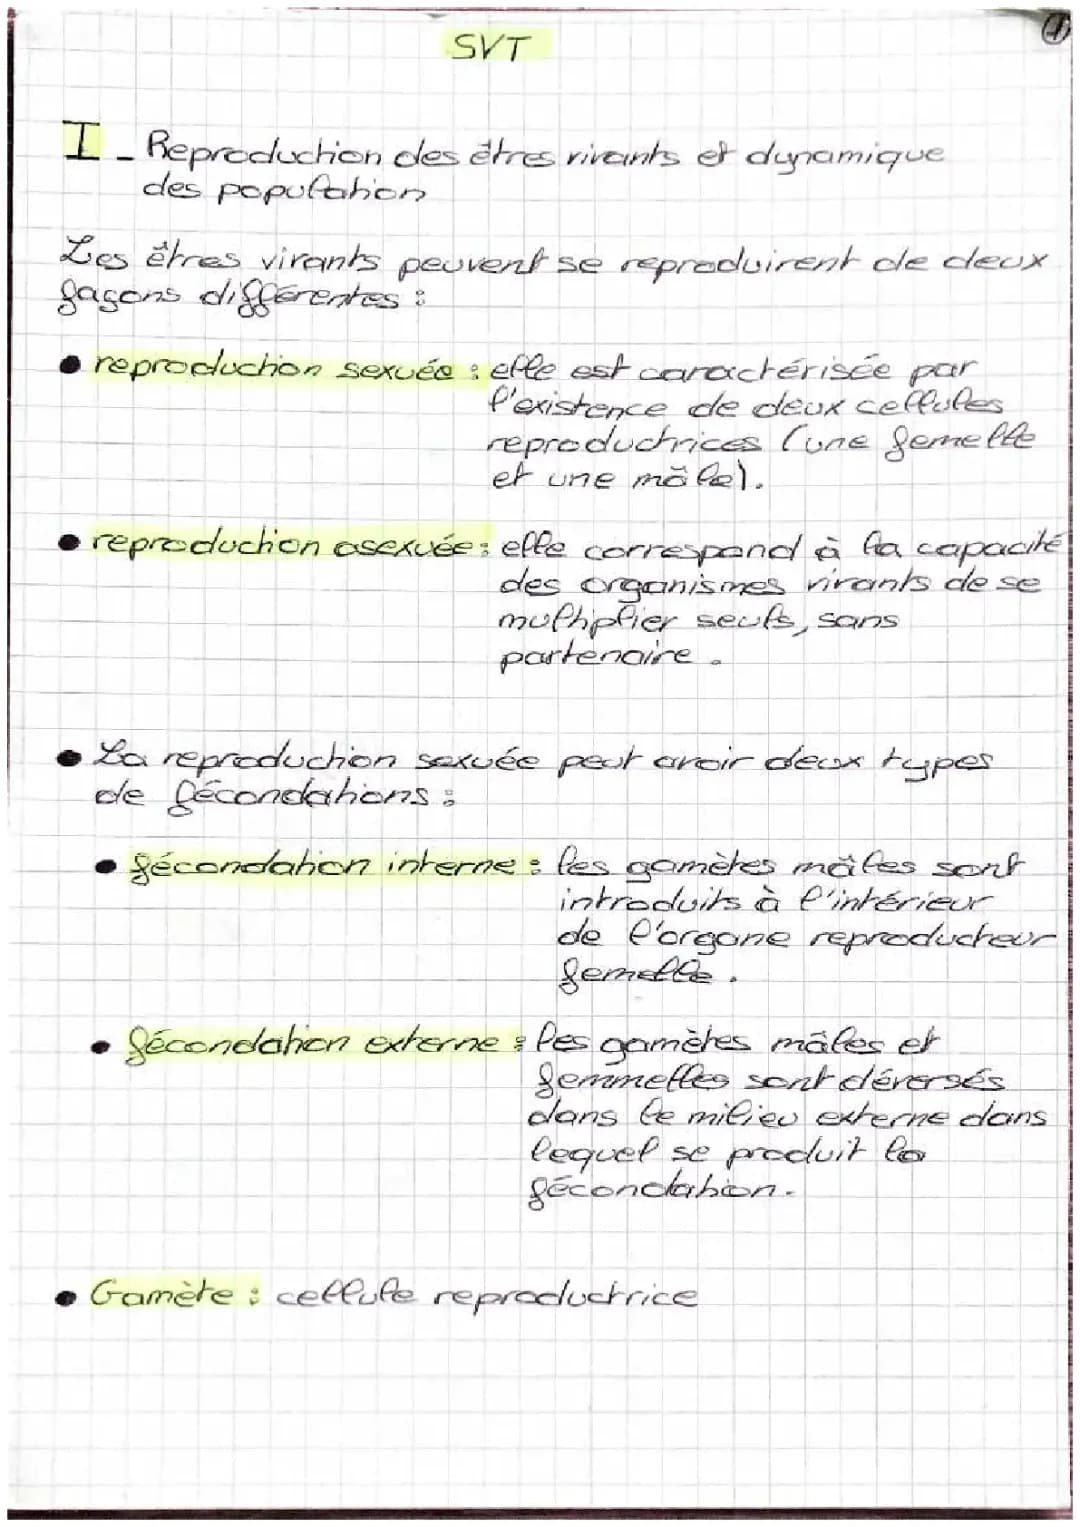 SVT
1
I - Reproduction des êtres vivants et dynamique
des population
Les êtres vivants peuvent se reproduirent de deux
façons différentes :
• reproduction sexuée : elle est caractérisée par
l'existence de deux cellules
reproductrices (une femelle
et une mâle).
• reproduction asexuée : elle correspond à la capacité
des organismes vivants de se
multiplier seuls, sans
partenaire.
• La reproduction sexuée peut avoir deux types
de fécondations :
• fécondation interne : les gamètes mâles sont
introduits à l'intérieur
de l'organe reproducteur
femelle.
• fécondation externe : les gamètes mâles et
femmelles sont déversés
dans le milieu externe dans
lequel se produit la
fécondation.
• Gamète : cellule reproductrice